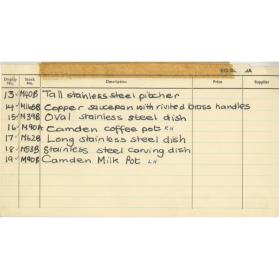 BIG No. JA
Display No. Stock No. Description Price Supplier
13 ✓ M40B Tall stainless steel pitcher
14 ✓ M46B Copper saucepan with rivited brass handles
15 ✓ M39B Oval stainless steel dish
16 ✓ M90A Camden coffee pot RH
17 ✓ M62B Long stainless steel dish
18 ✓ M53B Stainless steel carving dish
19 ✓ M90B Camden Milk Pot LH